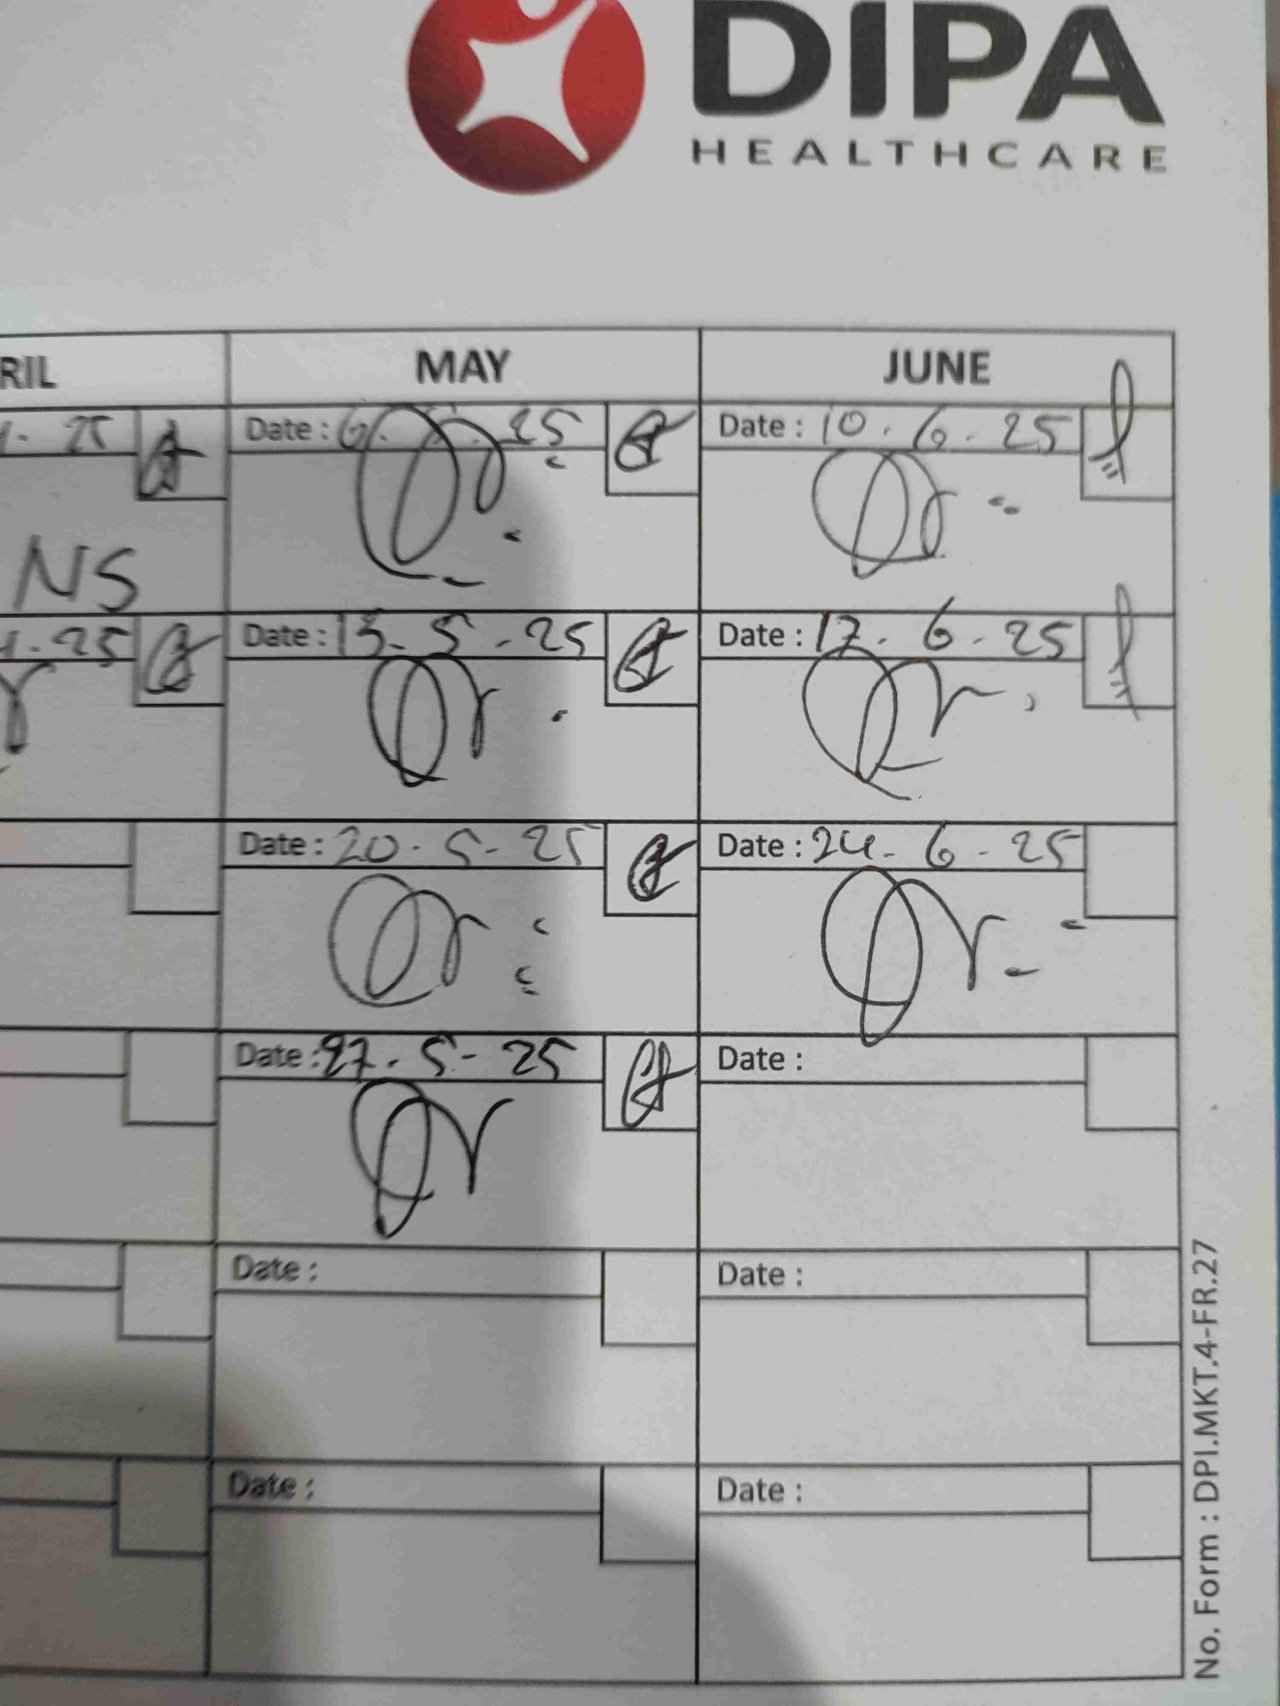 DIPA
HEALTHCARE
RIL MAY JUNE
25 Date : 6. 25 Date : 10. 6. 25
NS
25 Date : 13- 5 - 25 Date : 17. 6. 25
Date : 20. 5- 25 Date : 24- 6 - 25
Date : 27. 5- 25 Date :
Date : Date :
Date : Date :
No. Form : DPI.MKT.4-FR.27